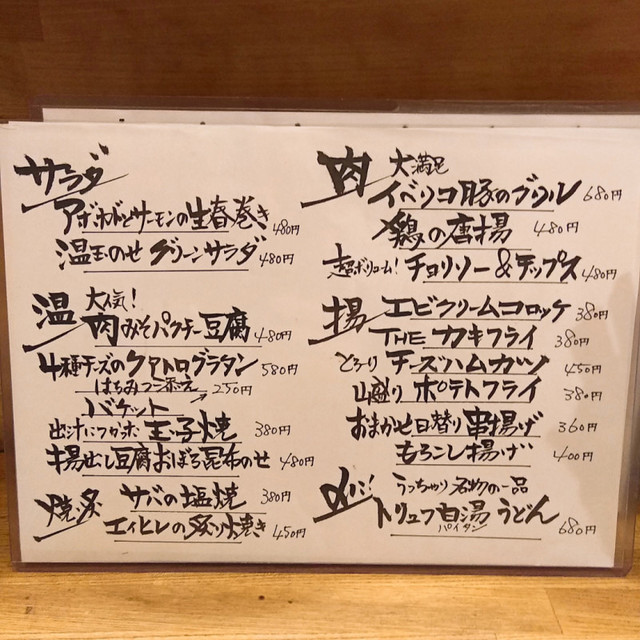 サラダ
アボカドとサーモンの生春巻き 480円
温玉のせ グリーンサラダ 480円
温
大人気!
肉みそパクチー豆腐 480円
4種チーズのクアトログラタン 580円
はちみつ添え
バケット → 250円
出汁につかった 玉子焼 380円
揚出し豆腐おぼろ昆布のせ 480円
焼・炙
サバの塩焼 380円
エイヒレの炙り焼き 450円
肉
大満足
イベリコ豚のグリル 680円
鶏の唐揚 480円
超ボリューム! チョリソー&チップス 480円
揚
エビクリームコロッケ 380円
THE カキフライ 380円
とろ〜り チーズハムカツ 450円
山盛り ポテトフライ 380円
おまかせ日替り串揚げ 360円
もろこし揚げ 400円
うっちゃり名物の一品
トリュフ白湯うどん 680円
パイタン